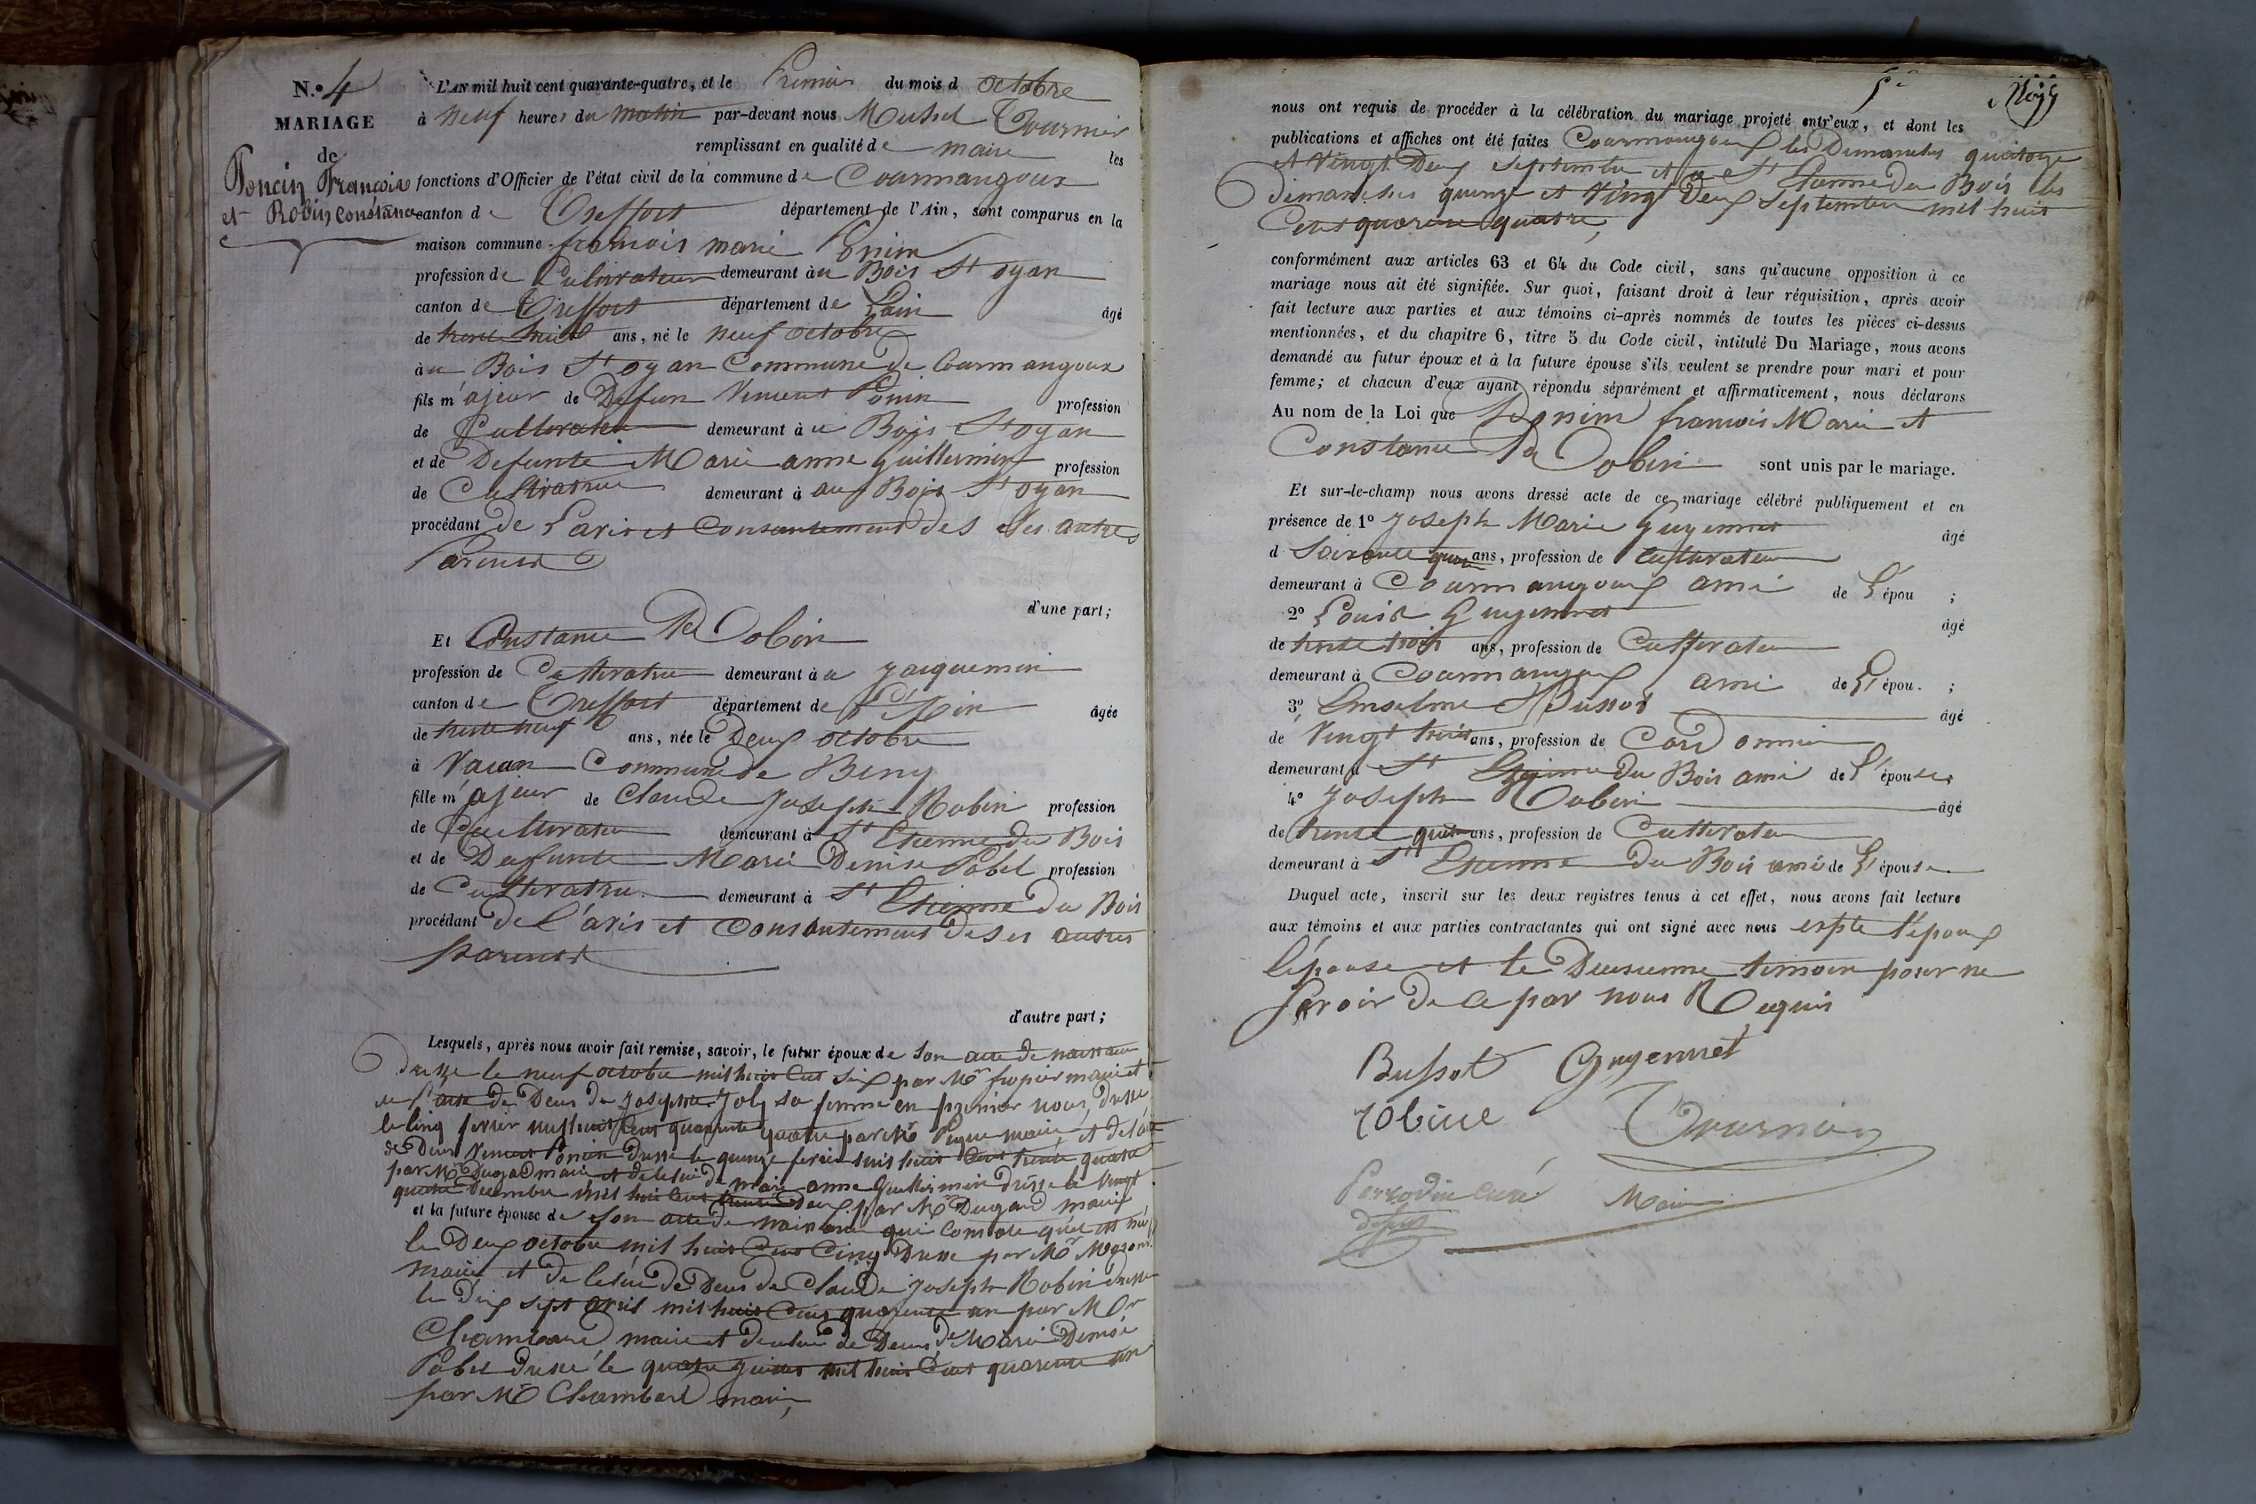 N.º 4
MARIAGE
de
Poncin François
et Robin Constance
L'AN mil huit cent quarante-quatre, et le Premier du mois d octobre
à neuf heures du matin par-devant nous Michel Tournier
remplissant en qualité de maire les
fonctions d'Officier de l'état civil de la commune de Courmangoux
canton de Treffort département de l'Ain, sont comparus en la
maison commune françois marie Ponsin
profession de Cultivateur demeurant àu Bois St oyan
canton de Treffort département de L'ain âgé
de trente huit ans, né le neuf octobre
àu Bois St oyan Commune de Courmangoux
fils majeur de Defun Vincent Ponin profession
de Cultivateur demeurant àu Bois St oyan
et de Defunte Marie anne guillermin profession
de Cultivatrice demeurant à au Bois St oyan
procédant de L'avis et Consantement des Ses autres
Parents
d'une part;
Et Constance Robin
profession de Cultivatrice demeurant à a jacquemin
canton de Treffort département de l'Ain âgée
de trente neuf ans, née le Deux octobre
à Vacan Commune de Beny
fille majeur de Claude Joseph Robin profession
de Cultivateur demeurant à St Etienne du Bois
et de Defunte Marie Denise Pobel profession
de Cultivatrice demeurant à St Etienne du Bois
procédant de l'avis et Consantement de ses autres
parents
d'autre part;
Lesquels, après nous avoir fait remise, savoir, le futur époux de son acte de naissance
dresse le neuf octobre mil huit Cent Six par Mr maire et
de Deces de Josephte Joly sa femme en premier nous, dresse
le Cinq fevrier mil huit Cent quarante quatre par Mr maire et de
de Deces Vincent Ponin Dresse le quinze fevrier mil huit Cent trente quatre
par Mr Dugad maire et de celui de marie anne Guillermin dresse le Vingt
quatre Decembre mil huit Cent trente Deux par Mr Dugad maire
et la future épouse de son acte de naissance qui Constate quel est né
le Deux octobre mil huit Cent Cinq Dresse par Mr
maire et de Celui de Deces de Claude Joseph Robin dresse
le dix sept avril mil huit Cent quarante un par Mr
Chambard maire et de celui de Deces de Marie Denise
Pobel dresse le quatre mil huit Cent quarente un
par Mr Chambard maire,
nous ont requis de procéder à la célébration du mariage projeté entr'eux, et dont les
publications et affiches ont été faites Courmangoux les Dimanches quatorze
et Vingt Deux septembre et a St Etienne du Bois les
dimanches quinze et Vingt Deux septembre mil huit
Cent quarante quatre,
conformément aux articles 63 et 64 du Code civil, sans qu'aucune opposition à ce
mariage nous ait été signifiée. Sur quoi, faisant droit à leur réquisition, après avoir
fait lecture aux parties et aux témoins ci-après nommés de toutes les pièces ci-dessus
mentionnées, et du chapitre 6, titre 5 du Code civil, intitulé Du Mariage, nous avons
demandé au futur époux et à la future épouse s'ils veulent se prendre pour mari et pour
femme; et chacun d'eux ayant répondu séparément et affirmativement, nous déclarons
Au nom de la Loi que Ponin françois Marie et
Constance Robin sont unis par le mariage.
Et sur-le-champ nous avons dressé acte de ce mariage célébré publiquement et en
présence de 1º Joseph Marie Guyennet âgé
d Soixante ans, profession de Cultivateur
demeurant à Courmangoux ami de L'épou ;
2º Louis Guyennet âgé
de trente trois ans, profession de Cultivateur
demeurant à Courmangoux ami de L'épou. ;
3º Enselme Bussot âgé
de Vingt trois ans, profession de Cordonnier
demeurant a St Etienne du Bois ami de L'épouse;
4º Joseph Robin âgé
de trente ans, profession de Cultivateur
demeurant à St Etienne du Bois ami de L'épouse
Duquel acte, inscrit sur les deux registres tenus à cet effet, nous avons fait lecture
aux témoins et aux parties contractantes qui ont signé avec nous exepte l'époux
l'épouse et le Deuxieme temoin pour ne
Savoir de ce par nous Requis
Bussot Guyennet
robin Tournier
Maire